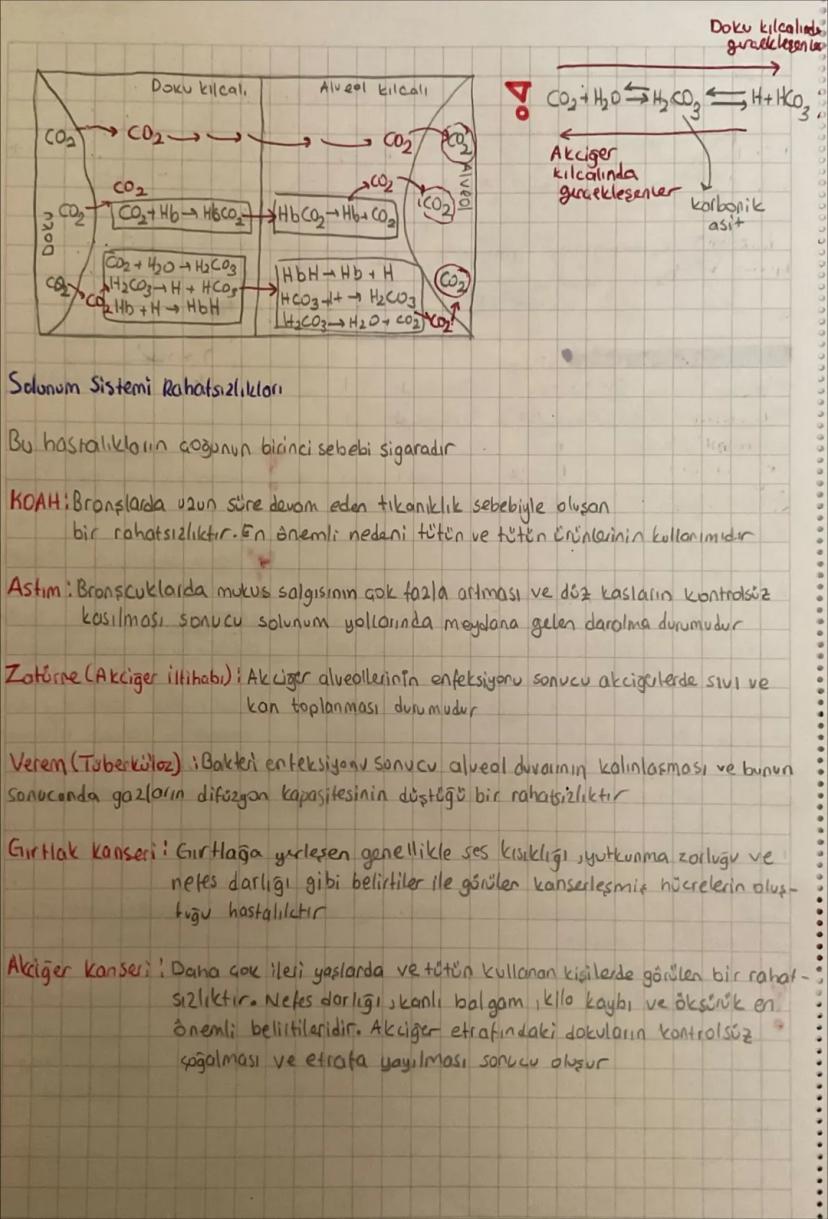 Doku kılcalında
gerçekleşenler
Doku kılcalı
Alveol kılcalı
CO₂ + H₂O ⇄ H₂CO₃ ⇄ H + HCO₃
Akciğer
kılcalında
gerçekleşenler
karbonik
asit
CO₂ → CO₂ → → → → CO₂ → CO₂
Doku
Alveol
CO₂
CO₂
CO₂
CO₂ + Hb → HbCO₂ → HbCO₂ → Hb + CO₂
CO₂
CO₂
CO₂
CO₂ + H₂O → H₂CO₃
H₂CO₃ → H + HCO₃
Hb + H → HbH
HbH → Hb + H
HCO₃ + H → H₂CO₃
H₂CO₃ → H₂O + CO₂
CO₂
CO₂
Solunum Sistemi Rahatsızlıkları
Bu hastalıkların çoğunun birinci sebebi sigaradır
KOAH: Bronşlarda uzun süre devam eden tıkanıklık sebebiyle oluşan
bir rahatsızlıktır. En önemli nedeni tütün ve tütün ürünlerinin kullanımıdır
Astım: Bronşcuklarda mukus salgısının çok fazla artması ve düz kasların kontrolsüz
kasılması sonucu solunum yollarında meydana gelen daralma durumudur
Zatürre (Akciğer iltihabı): Akciğer alveollerinin enfeksiyonu sonucu akciğerlerde sıvı ve
kan toplanması durumudur
Verem (Tüberküloz): Bakteri enfeksiyonu sonucu alveol duvarının kalınlaşması ve bunun
sonucunda gazların difüzyon kapasitesinin düştüğü bir rahatsızlıktır
Gırtlak kanseri: Gırtlağa yerleşen genellikle ses kısıklığı, yutkunma zorluğu ve
nefes darlığı gibi belirtiler ile görülen kanserleşmiş hücrelerin oluş-
tuğu hastalıktır
Akciğer kanseri: Daha çok ileri yaşlarda ve tütün kullanan kişilerde görülen bir rahat-
sızlıktır. Nefes darlığı, kanlı balgam, kilo kaybı ve öksürük en
önemli belirtileridir. Akciğer etrafındaki dokuların kontrolsüz
çoğalması ve etrafa yayılması sonucu oluşur